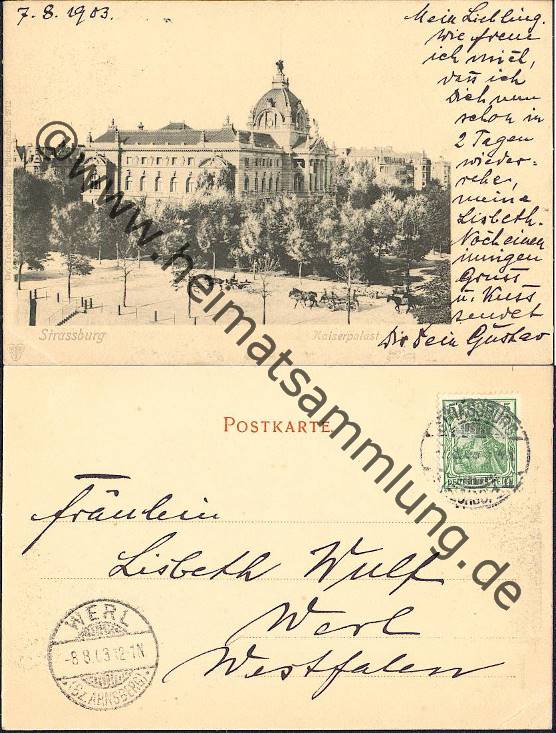 7.8.1903.
Mein Liebling.
Wie freue
ich mich,
dass ich
Dich nun
schon in
2 Tagen
wieder-
sehe,
meine
Lisbeth.
Noch einen
innigen
Gruss
u. Kuss
sendet
Dir Dein Gustav
Strassburg
Kaiserpalast
@www.heimatsammlung.de
POSTKARTE
STRASSBURG
5
DEUTSCHES REICH
Fräulein
Lisbeth Wulf
Werl
Westfalen
WERL
-8 8 03 12-1N
(BZ. ARNSBERG)